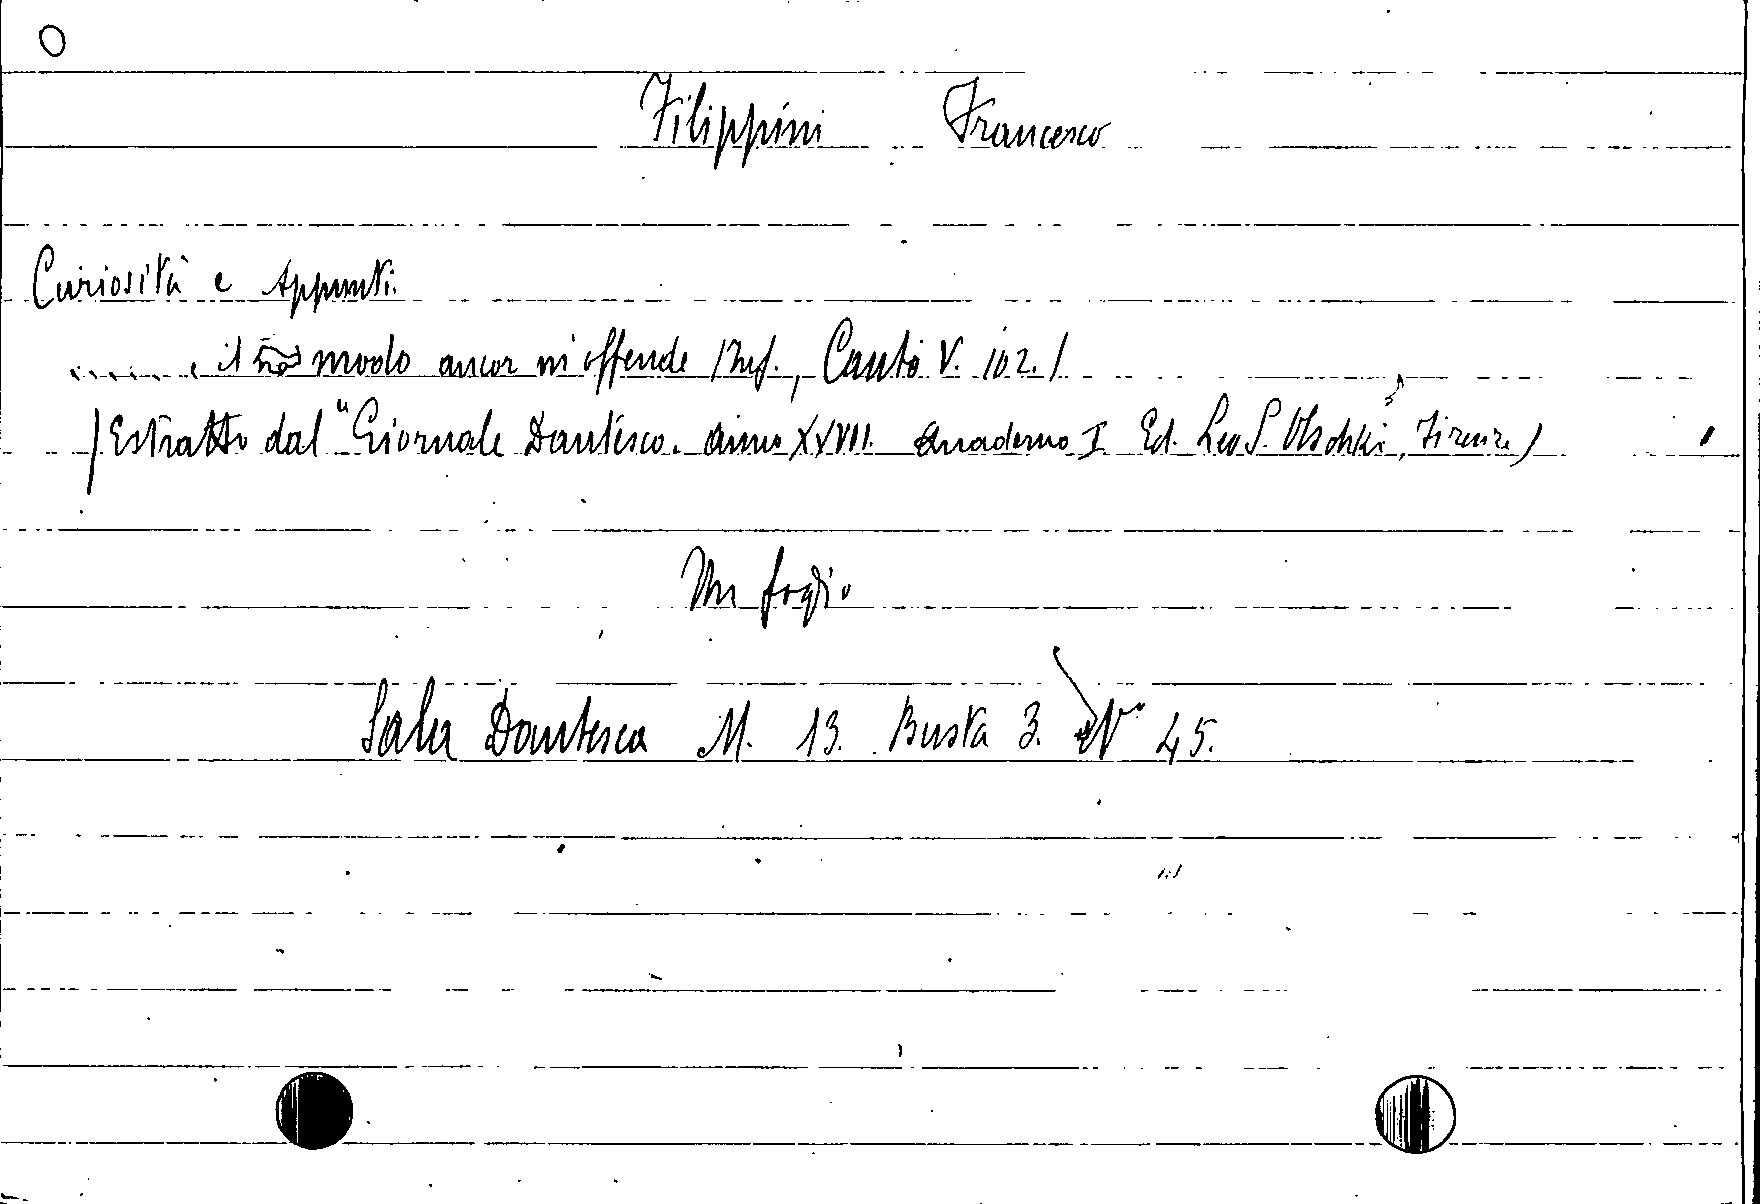 O
Filippini Francesco
Curiosità e Appunti.
...... il modo ancor m'offende /Inf., Canto V. 102./
/Estratto dal "Giornale Dantesco. anno XXVII. Quaderno I Ed. Leo S. Olschki, Firenze/
Un foglio
Sala Dantesca M. 13. Busta 3. N° 45.